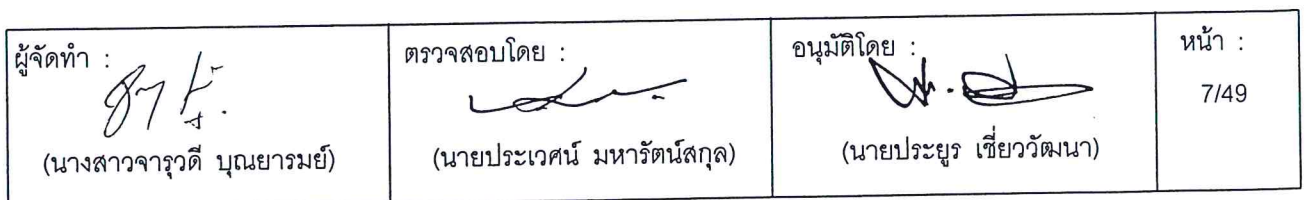 ผู้จัดทำ :
(นางสาวจารุวดี บุณยารมย์)
ตรวจสอบโดย :
(นายประเวศน์ มหารัตน์สกุล)
อนุมัติโดย :
(นายประยูร เชี่ยววัฒนา)
หน้า :
7/49